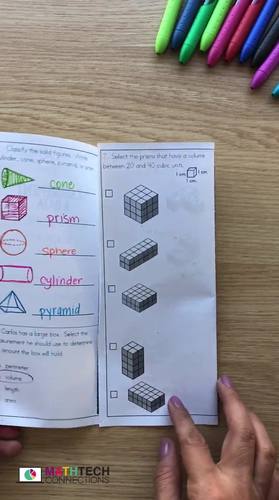 Classify the solid figures. Write
cylinder, cone, sphere, pyramid, or prism.
cone
prism
sphere
cylinder
pyramid
Carlos has a large box. Select the
measurement he should use to determine
amount the box will hold.
perimeter
volume
length
area
7. Select the prisms that have a volume
between 20 and 40 cubic units.
1 cm.
1 cm.
1 cm.
MATHTECH
CONNECTIONS